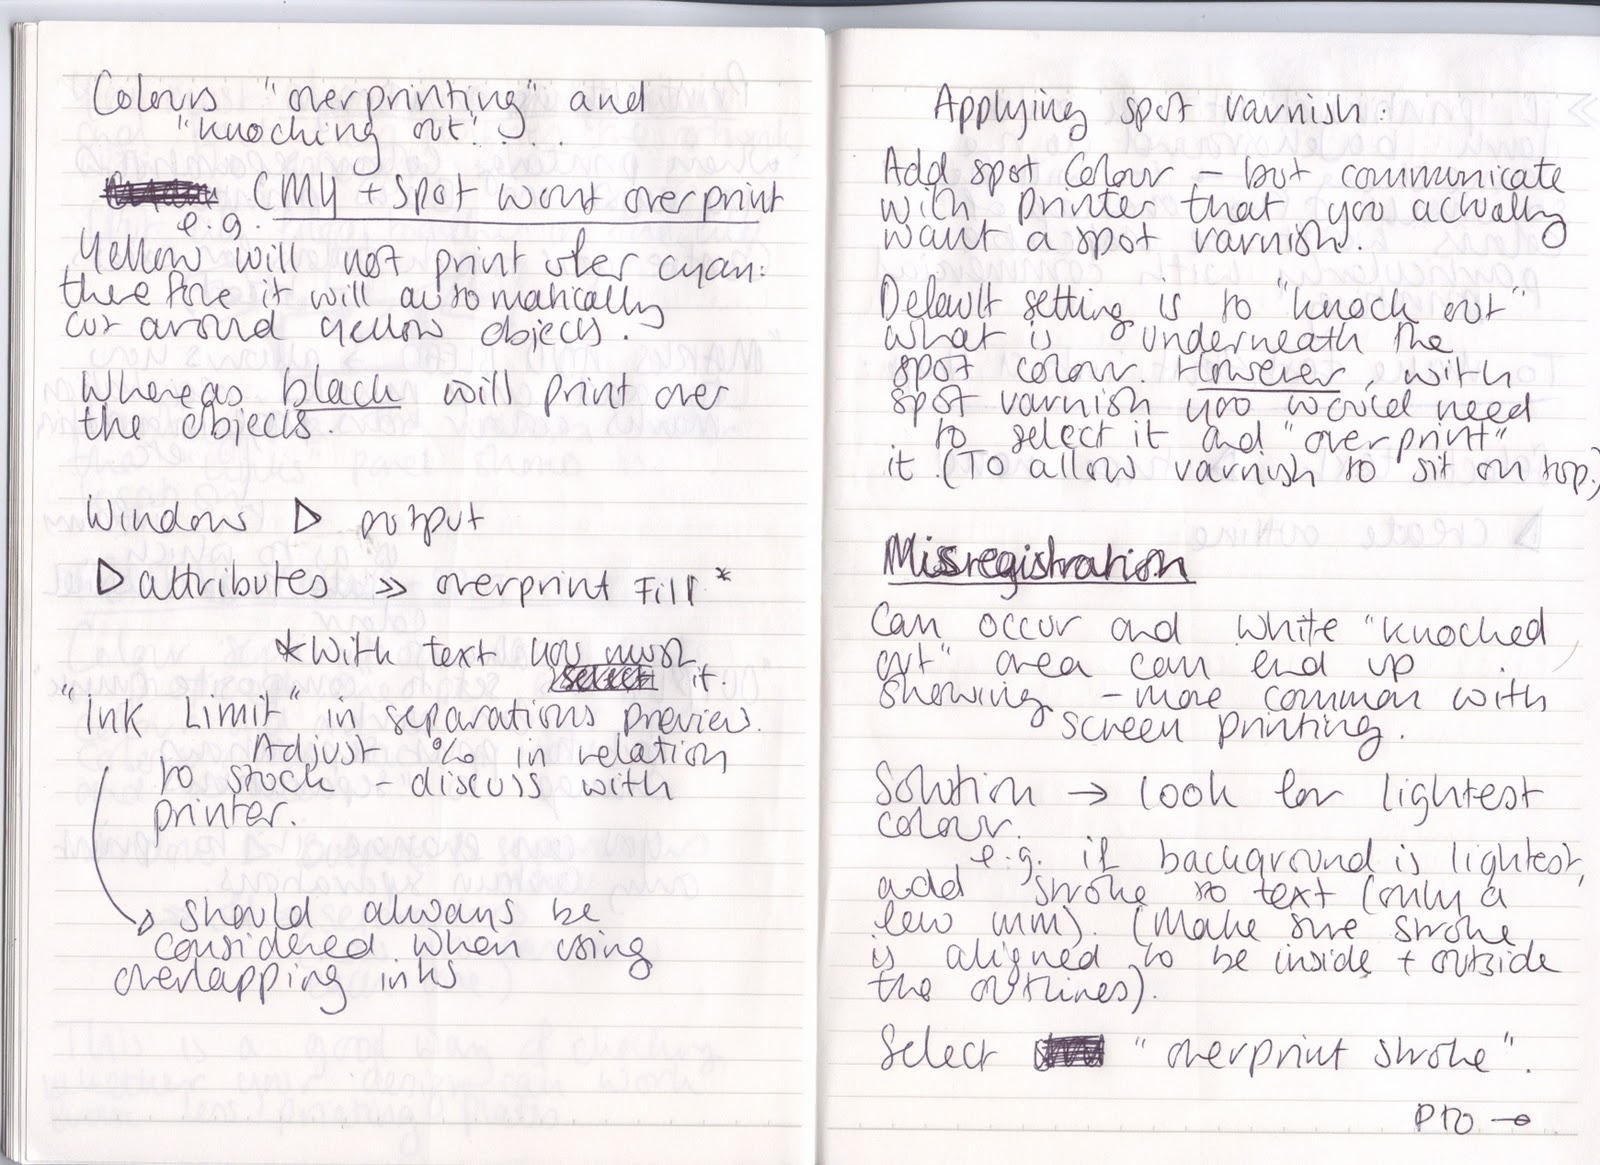 Colours "overprinting" and
"knocking out"....
CMY + Spot wont overprint
e.g.
Yellow will not print over cyan:
therefore it will automatically
cut around yellow objects.
Whereas black will print over
the objects.
Windows ▷ output
▷ attributes >> overprint Fill *
*With text you must
select it.
"Ink Limit" in separations preview.
Adjust % in relation
to stock - discuss with
printer.
should always be
considered when using
overlapping inks
Applying spot varnish:
Add spot colour - but communicate
with printer that you actually
want a spot varnish.
Default setting is to "knock out"
what is underneath the
spot colour. However, with
spot varnish you would need
to select it and "overprint"
it. (To allow varnish to sit on top.)
Misregistration
Can occur and white "knocked
out" area can end up
showing - more common with
screen printing.
Solution → look for lightest
colour.
e.g. if background is lightest,
add stroke to text (only a
few mm). (Make sure stroke
is aligned to be inside + outside
the outlines).
Select "overprint stroke".
PTO →